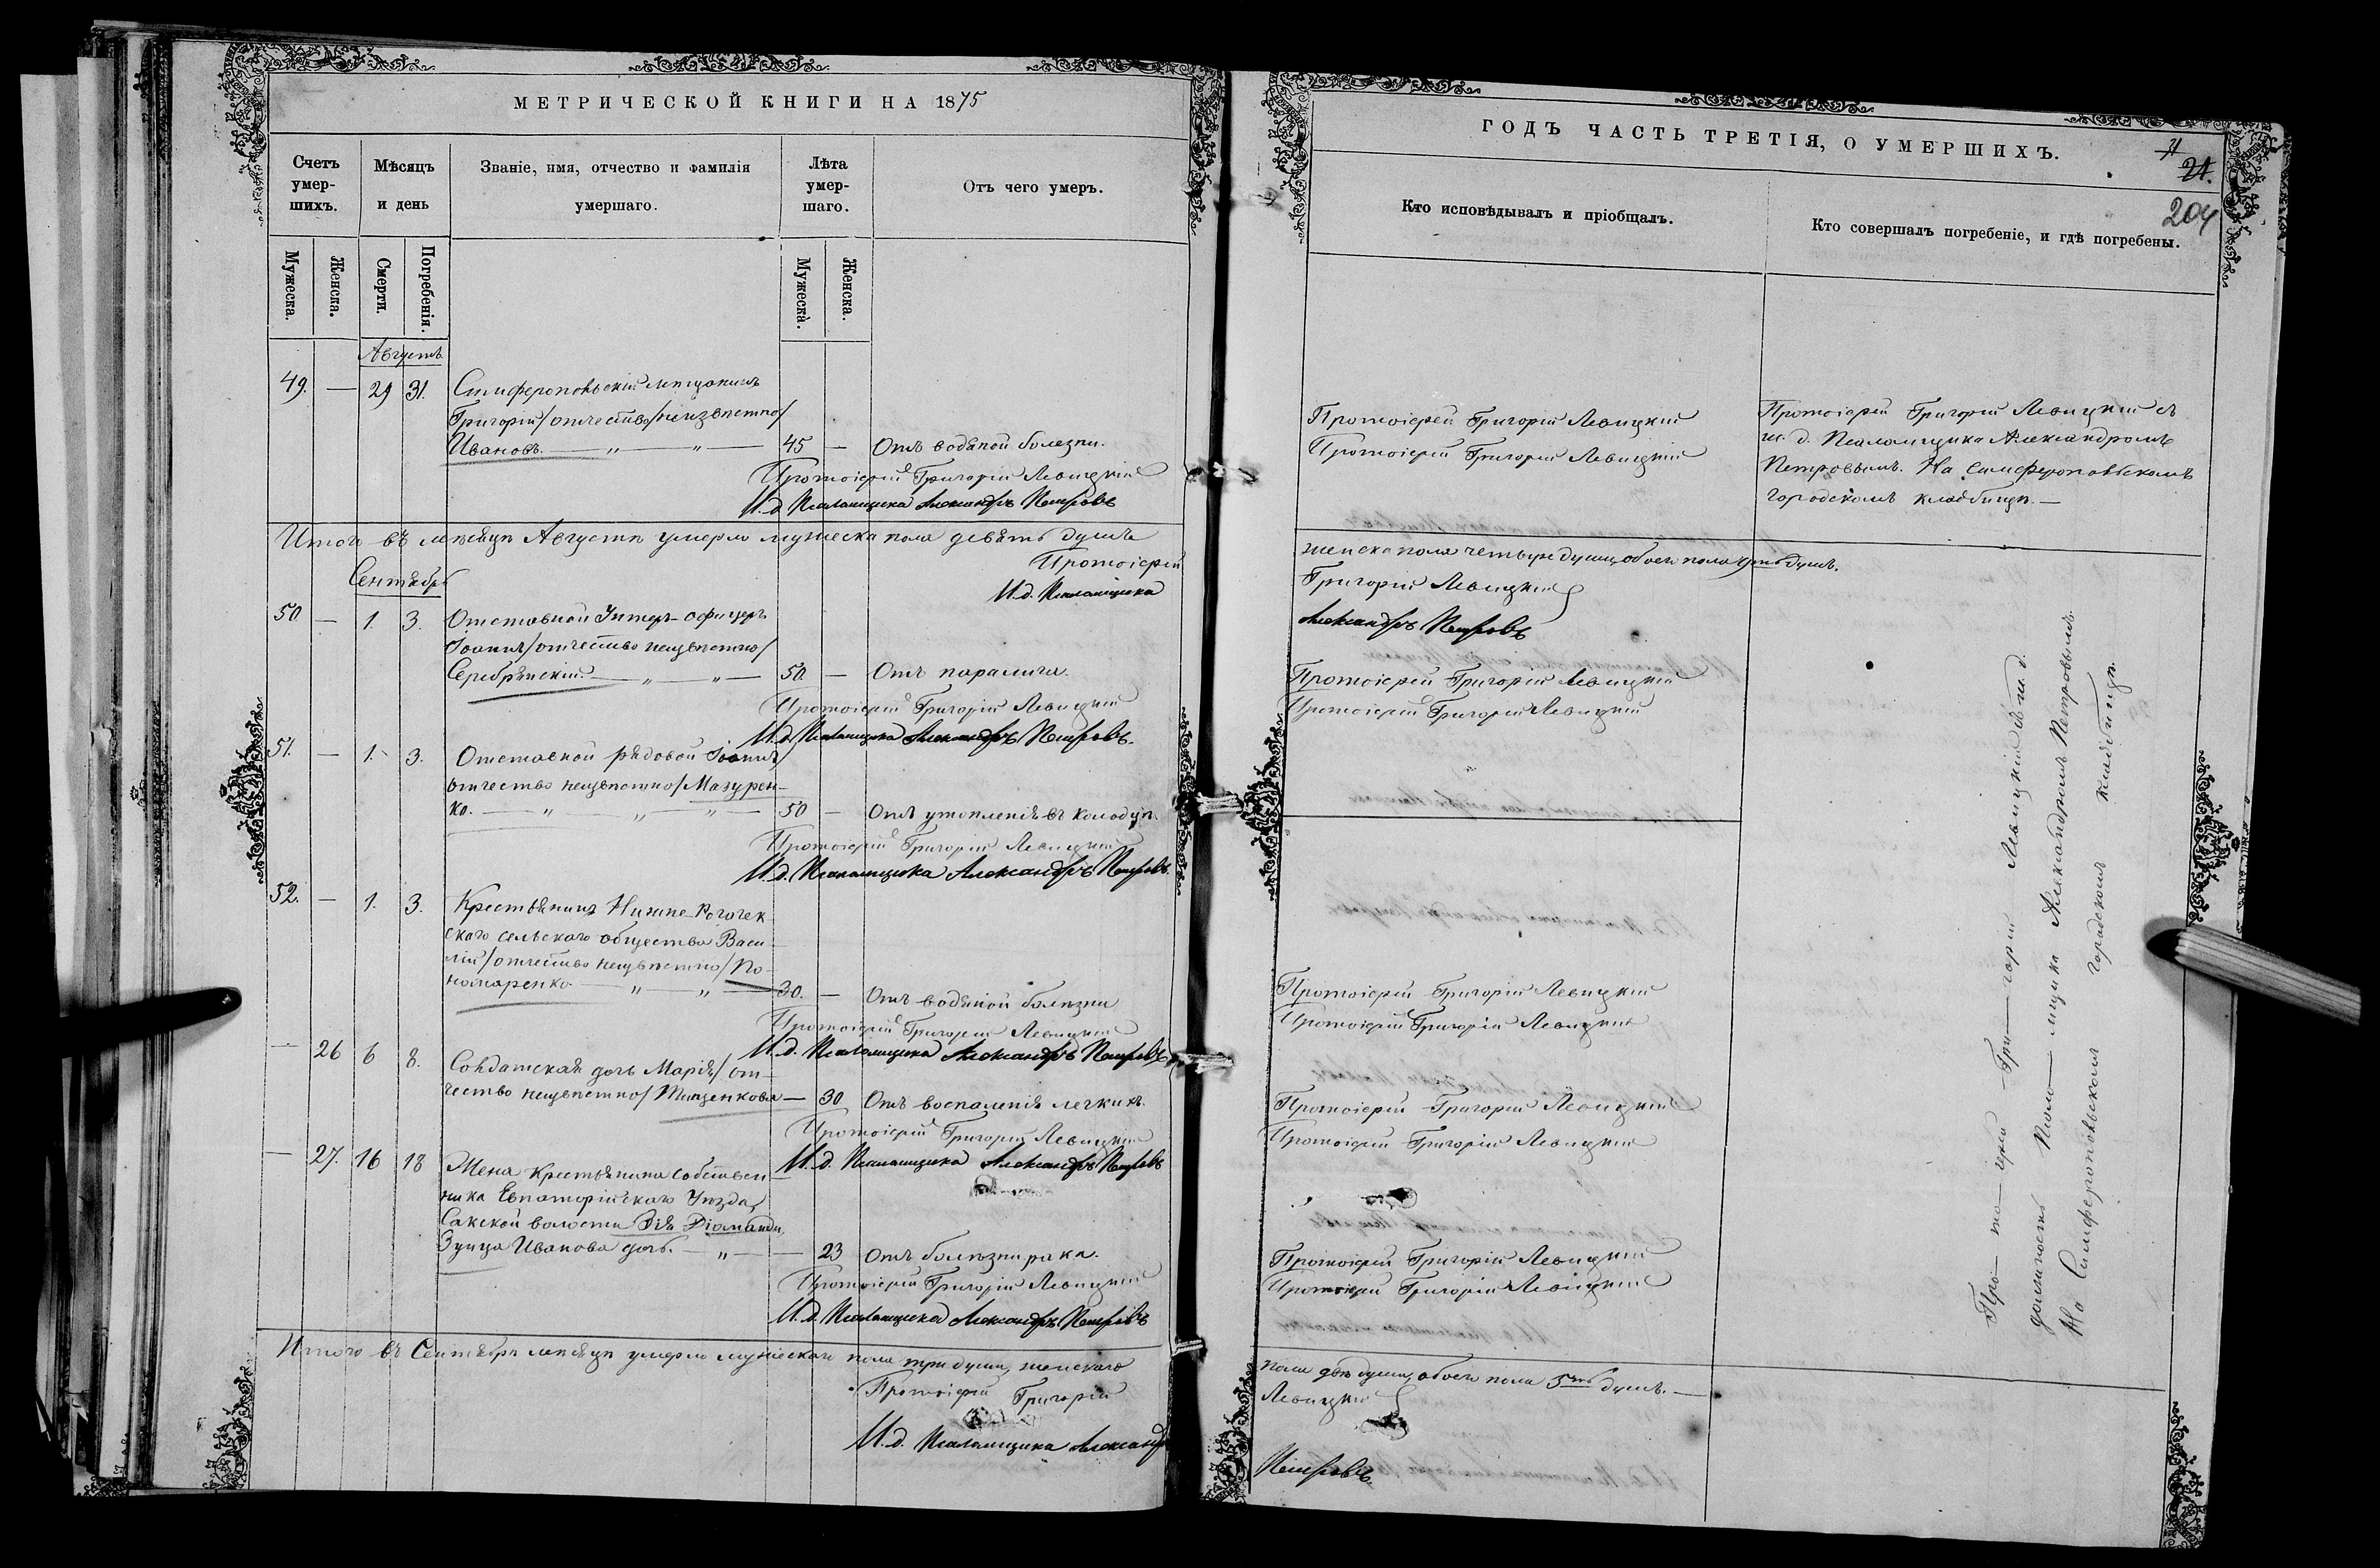 МЕТРИЧЕСКОЙ КНИГИ НА 1875
Счетъ умер-шихъ.
Мѣсяцъ и день
Званіе, имя, отчество и фамилія умершаго.
Лѣта умер-шаго.
Отъ чего умеръ.
Мужеска.
Женска.
Смерти.
Погребенія.
Мужеска.
Женска.
Августъ
49. — 29 31. Симферопольскій мѣщанинъ
Григорій /отчество неизвѣстно/
Ивановъ. — „ — „ — 45 — Отъ водяной болезни.
Протоіерей Григорій Левицкій
И. д. Псаломщика Александръ Петровъ
Итого въ мѣсяцѣ Августѣ умерло мужеска пола девять душъ
Протоіерей
И. д. Псаломщика
Сентябрь
50 — 1. 3. Отставной Унтеръ-офицеръ
Іоаннъ /отчество неизвѣстно/
Серебрянскій. — „ — „ — 50. — Отъ паралича.
Протоіерей Григорій Левицкій
И. д. Псаломщика Александръ Петровъ.
51. — 1. 3. Отставной рядовой Іоаннъ /
отчество неизвѣстно/ Мазурен-
ко. — „ — „ — „ — 50 — Отъ утопленія въ колодцѣ.
Протоіерей Григорій Левицкій
И. д. Псаломщика Александръ Петровъ.
52. — 1. 3. Крестьянинъ Нижне-Рогачек-
скаго сельскаго общества Васи-
лій /отчество неизвѣстно/ По-
номаренко. — „ — „ — 30. — Отъ водяной болѣзни
Протоіерей Григорій Левицкій
И. д. Псаломщика Александръ Петровъ
— 26 6 8. Солдатская дочь Марія /от-
чество неизвѣстно/ — 30 Отъ воспаленія легкихъ.
Протоіерей Григорій Левицкій
И. д. Псаломщика Александръ Петровъ
— 27. 16 18 Жена крестьянина собствен-
ника Евпаторійскаго Уѣзда,
Сакской волости
Иванова дочь. — „ — — 23 отъ болѣзни рака.
Протоіерей Григорій Левицкій
И. д. Псаломщика Александръ Петровъ
Итого въ Сентябрѣ мѣсяцѣ умерло мужескаго пола три души, женскаго
Протоіерей Григорій
И. д. Псаломщика Александръ
ГОДЪ ЧАСТЬ ТРЕТІЯ, О УМЕРШИХЪ.
21.
204
Кто исповѣдывалъ и пріобщалъ.
Кто совершалъ погребеніе, и гдѣ погребены.
Протоіерей Григорій Левицкій
Протоіерей Григорій Левицкій
Протоіерей Григорій Левицкій съ
и. д. Псаломщика Александромъ
Петровымъ. На Симферопольскомъ
городскомъ кладбищѣ. —
женска пола четыре души, обоего пола душъ.
Григорій Левицкій
Александръ Петровъ
Протоіерей Григорій Левицкій
Протоіерей Григорій Левицкій
Протоіерей Григорій Левицкій
Протоіерей Григорій Левицкій
Протоіерей Григорій Левицкій
Протоіерей Григорій Левицкій
Протоіерей Григорій Левицкій
Протоіерей Григорій Левицкій
Про— то— іерей Гри— горій Левицкій съ и. д.
должность Псало— мщика Александромъ Петровымъ.
На Симферопольскомъ городскомъ кладбищѣ.
пола двѣ души, обоего пола 5ть душъ. —
Левицкій
Петровъ.